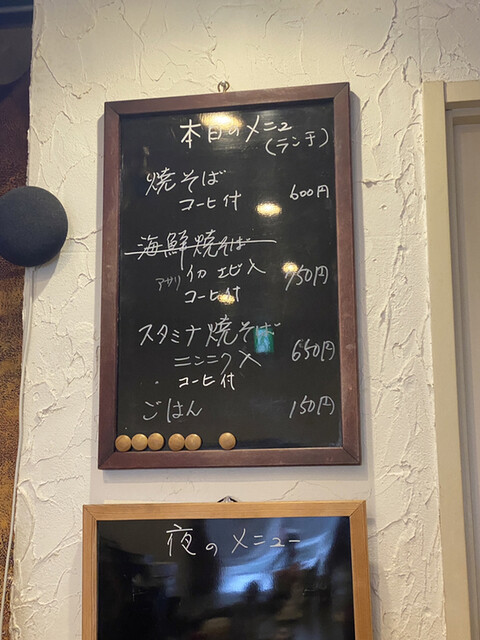 本日のメニュ
(ランチ)
焼そば
コーヒ付 600円
海鮮焼そば
アサリ イカ エビ入 950円
コーヒ付
スタミナ焼そば
ニンニク入 650円
コーヒ付
ごはん 150円
夜のメニュー